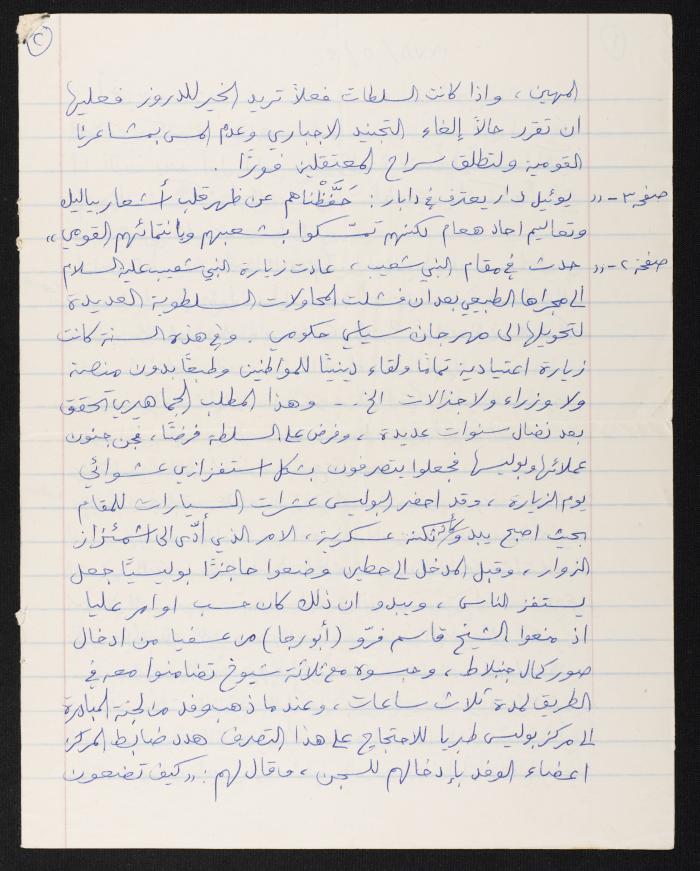 ٢
المهين، واذا كانت السلطات فعلاً تريد الخير للدروز فعليها
ان تقرر حالاً إلغاء التجنيد الاجباري وعدم المس بمشاعرنا
القومية ولتطلق سراح المعتقلين فورًا.
صفحة ٣- " يوئيل دار يعترف في دابار: حَفَّظْناهم عن ظهر قلب أشعار بياليك
وتعاليم احاد هعام لكنهم تمسّكوا بشعبهم وبانتمائهم القومي "
صفحة ٢- " حدث في مقام النبي شعيب، عادت زيارة النبي شعيب عليه السلام
الى مجراها الطبيعي بعد ان فشلت المحاولات السلطوية العديدة
لتحويلها الى مهرجان سياسي حكومي. وفي هذه السنة كانت
زيارة اعتيادية تمامًا ولقاء دينيًا للمواطنين وطبعًا بدون منصة
ولا وزراء ولا جنرالات الخ... وهذا المطلب الجماهيري تحقق
بعد نضال سنوات عديدة، وفرض على السلطة فرضًا، فجن جنون
عملائها وبوليسها فجعلوا يتصرفون بشكل استفزازي عشوائي
يوم الزيارة، وقد احضر البوليس عشرات السيارات للمقام
بحيث اصبح يبدو وكأنه ثكنة عسكرية، الامر الذي أدّى الى اشمئزاز
الزوار، وقبل المدخل الى حطين وضعوا حاجزًا بوليسيًا جعل
يستفز الناس، ويبدو ان ذلك كان حسب اوامر عليا
اذ منعوا الشيخ قاسم فرّو (أبو رجا) من عسفيا من ادخال
صور كمال جنبلاط، وحبسوه مع ثلاثة شيوخ تضامنوا معه في
الطريق لمدة ثلاث ساعات، وعندما ذهب وفد من لجنة المبادرة
الى مركز بوليس طبريا للاحتجاج على هذا التصرف هدد ضابط المركز
اعضاء الوفد بإدخالهم للسجن، وقال لهم: " كيف تضعون